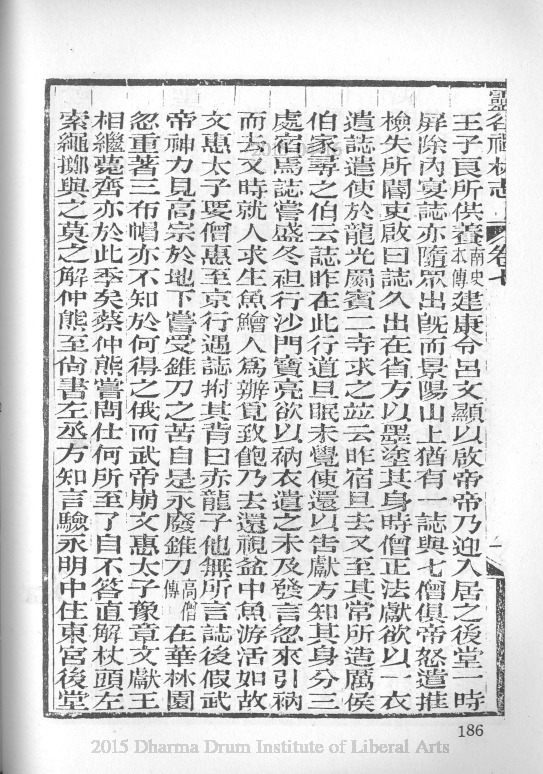 靈谷禪林志 卷七 一
王子良所供養南史本傳建康令呂文顯以啟帝帝乃迎入居之後堂一時
屏除內宴誌亦隨眾出旣而景陽山上猶有一誌與七僧俱帝怒遣推
檢失所閽吏啟曰誌久出在省方以墨塗其身時僧正法獻欲以一衣
遺誌遣使於龍光罽賓二寺求之並云昨宿旦去又至其常所造厲侯
伯家尋之伯云誌昨在此行道旦眠未覺使還以告獻方知其身分三
處宿焉誌嘗盛冬袒行沙門寶亮欲以衲衣遺之未及發言忽來引衲
而去又時就人求生魚鱠人爲辦覓致飽乃去還視盆中魚游活如故
文惠太子要僧惠至京行遇誌拊其背曰赤龍子他無所言誌後假武
帝神力見高宗於地下嘗受錐刀之苦自是永廢錐刀高僧傳在華林園
忽重著三布帽亦不知於何得之俄而武帝崩文惠太子豫章文獻王
相繼薨齊亦於此季矣蔡仲熊嘗問仕何所至了自不答直解杖頭左
索繩擲與之莫之解仲熊至尙書左丞方知言驗永明中住東宮後堂
186
2015 Dharma Drum Institute of Liberal Arts